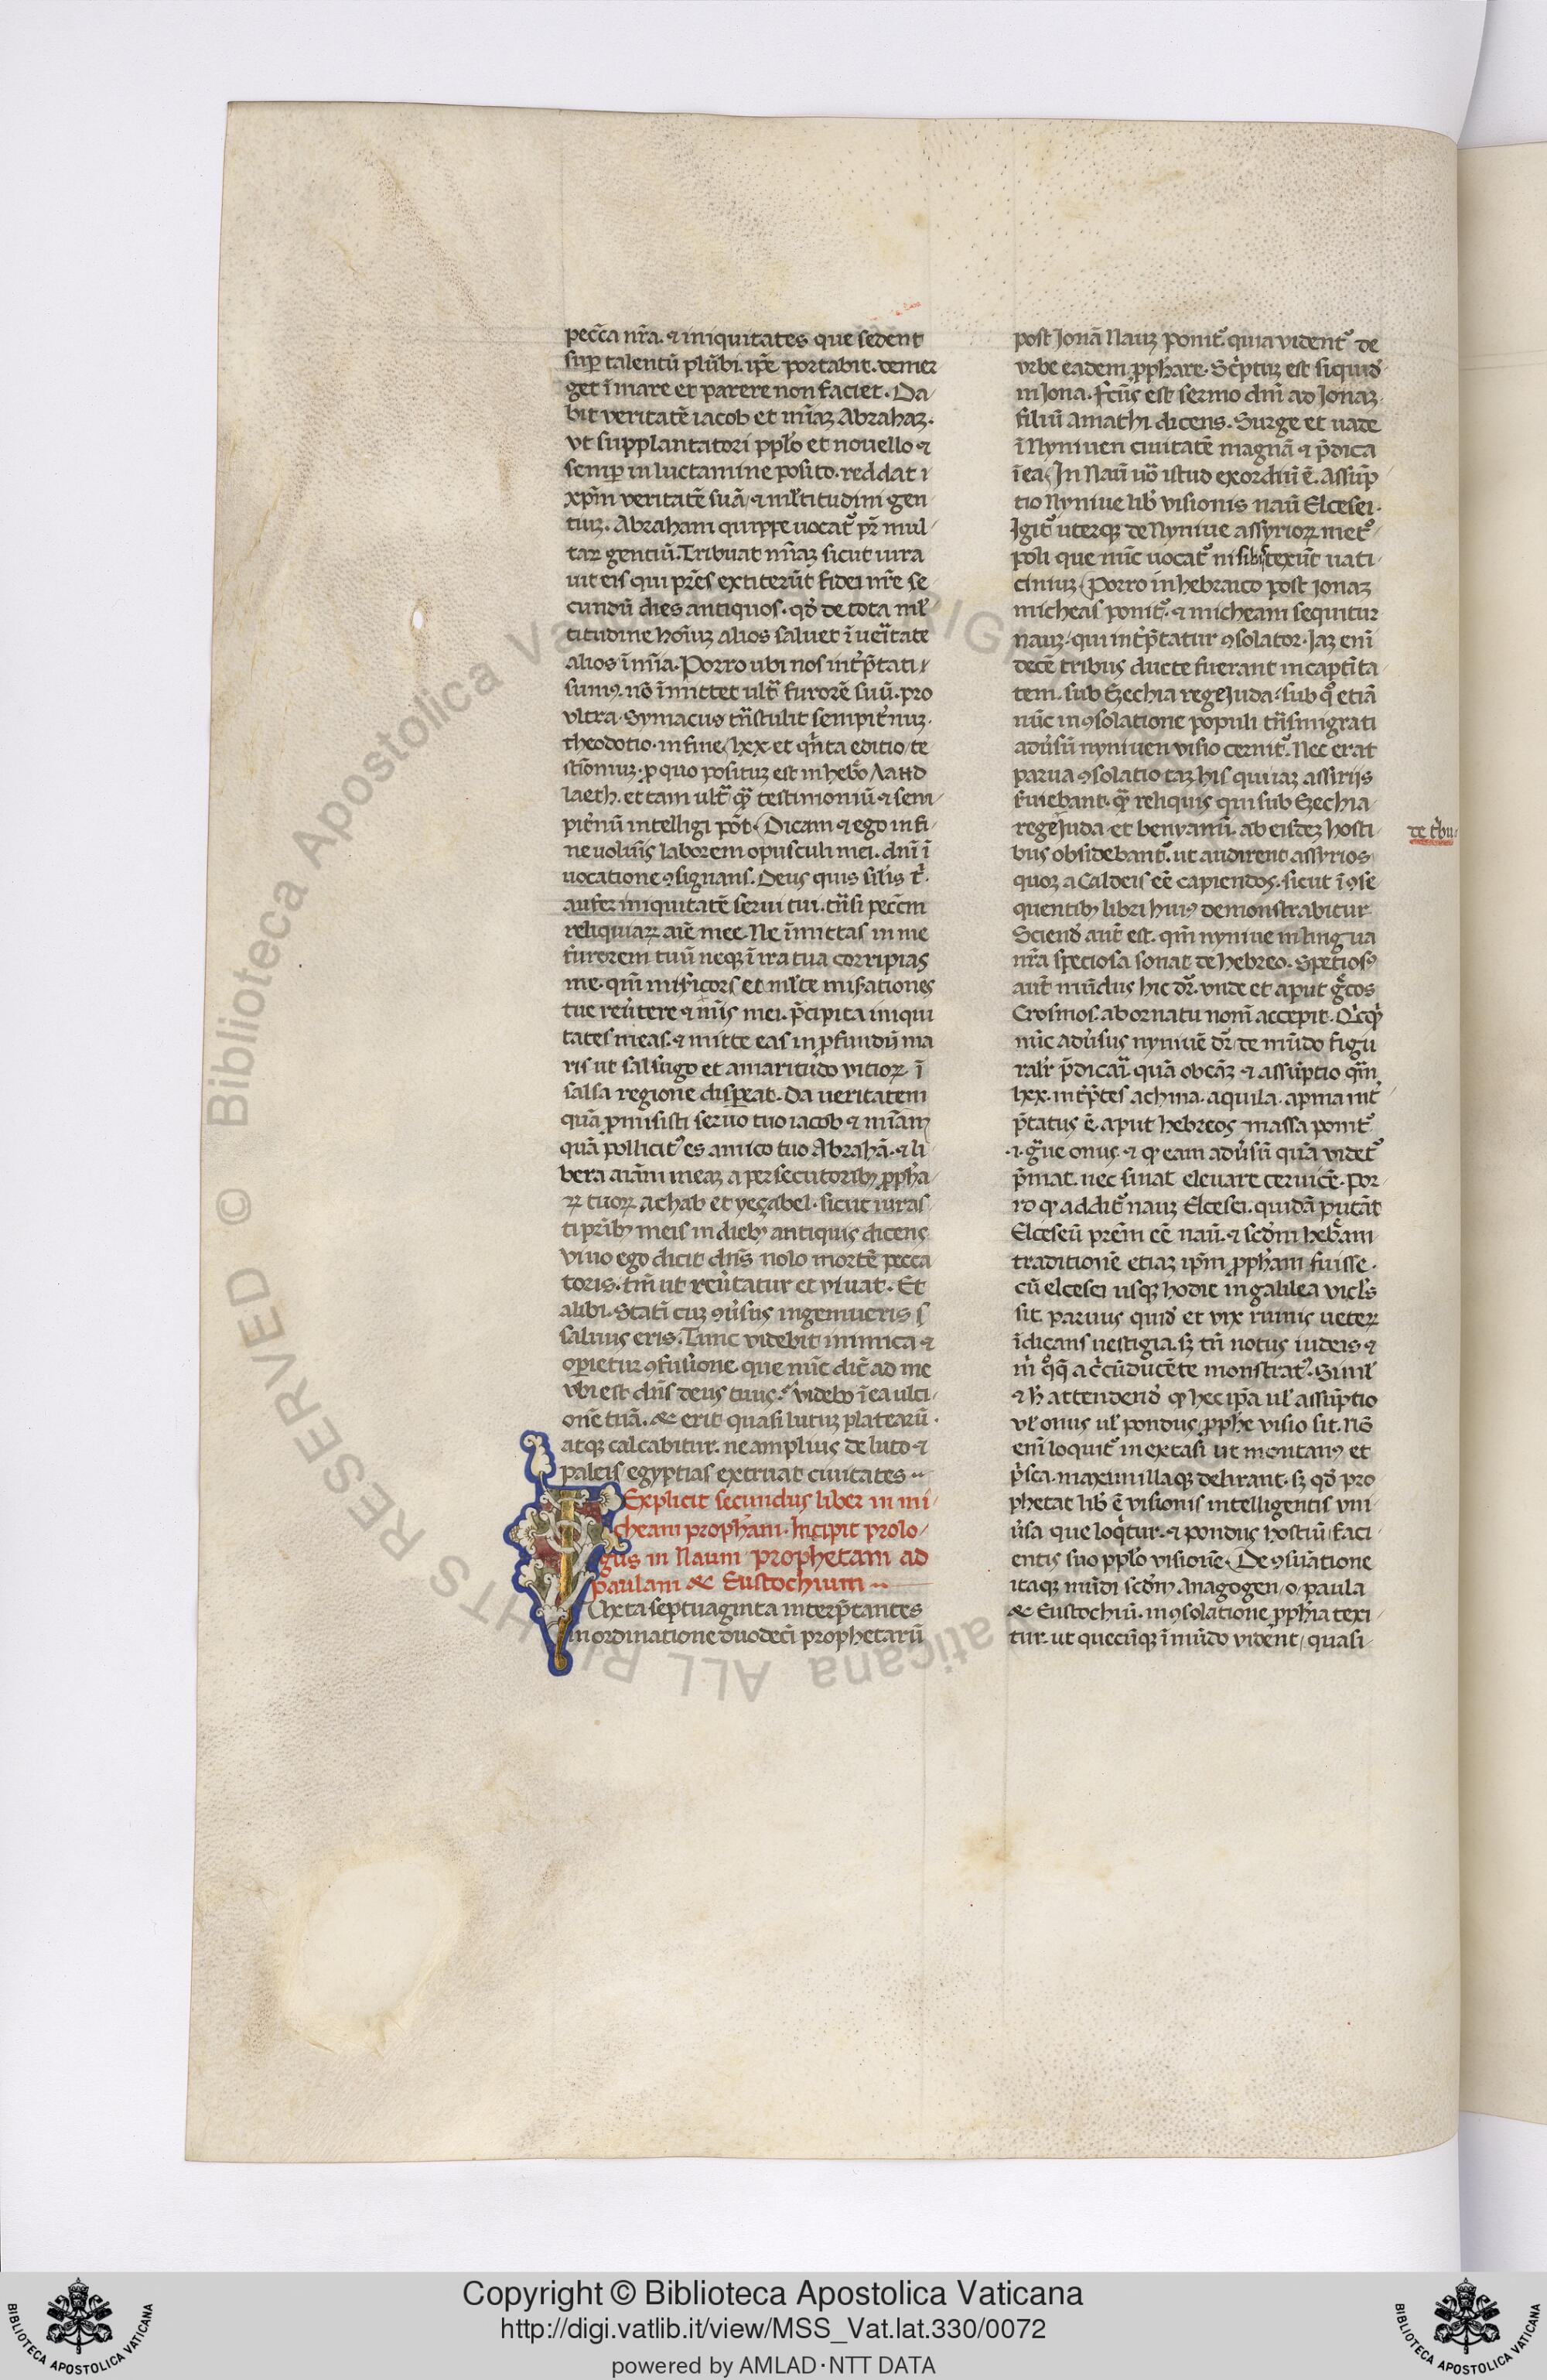 pecc̄a nr̄a. ⁊ iniquitates que sedent
suꝑ talentū plūbi. ip̄e portabit. demer
get ī mare et parere non faciet. Da
bit veritatē iacob et mīaꝫ Abrahaꝫ.
vt supplantatori ppl̄o et nouello ⁊
semꝑ in luctamine posito. reddat i
xp̄m veritatē suā ⁊ ml̄titudini gen
tiuꝫ. Abraham quippe uocat᷑ pr̄ mul
taꝝ gentiū. Tribuat mīaꝫ sicut iura
uit eis qui pr̄es extiterūt fidei nr̄e se
cundū dies antiquos. qđ de tota ml̄
titudine hoīuꝫ alios saluet ī ueritate
alios ī mīa. Porro ubi nos int̄p̄tati
sumꝰ. nō īmittet ult̄ furorē suū. pro
vltra. Symacus tn̄stulit sempit̄nuꝫ.
theodotio. in fine lxx. et qn̄ta editio te
stīoniuꝫ. ꝓ quo posituꝫ est in heb̄o
laeth. et tam ult̄ qꝫ testimoniū ⁊ sem
pit̄nū intelligi pōt. Dicam ⁊ ego in fi
ne uolum̄s laborem opusculi mei. dn̄i ī
uocatione ꝯsignans. Deus quis sil̄is t̄.
aufer iniquitatē serui tui. tn̄si pecc̄m
reliquiaꝝ aīe mee. Ne īmittas in me
furorem tuū neqꝫ ī ira tua corripias
me. qm̄ misicors et ml̄te mis̄ationes
tue reūtere ⁊ mis̄ mei. p̄cipita iniqui
tates meas. ⁊ mitte eas in ꝓfundū ma
ris ut salsugo et amaritudo vitioꝝ ī
salsa regione dispeat. Da ueritatem
quā ꝓmisisti seruo tuo iacob ⁊ mīam
quā pollicitꝰ es amico tuo Abrahā. ⁊ li
bera aīam meaꝫ a persecutoribꝫ ꝓpħa
ꝝ tuoꝝ achab et yeçabel. sicut iuras
ti pr̄ibꝫ meis in diebꝫ antiquis dicens
viuo ego dicit dn̄s nolo mortē pecca
toris. tm̄ ut reūtatur et viuat. Et
alibi. Statī cuꝫ ꝯūsus ingemueris
saluus eris. Tunc videbit inimica ⁊
opietur ꝯfusione. que nūc dic̄t ad me
vbi est dn̄s deus tuus. videbo ī ea ulci
onē tuā. ⁊ erit quasi lutuꝫ platearū.
atqꝫ calcabitur. ne amplius de luto ⁊
paleis egyptias extruat ciuitates
Explicit secundus liber in mi
cheam propħam. Incipit prolo
gus in Naum prophetam ad
paulam & Eustochium
Vxta septuaginta interp̄tantes
in ordinatione duodecī prophetarū
post Jonā Nauꝫ ponit᷑. quia vident᷑ de
vrbe eadem ꝓphare. Sc̄ptuꝫ est siquid
in Jona. Fc̄us est sermo dn̄i ad Jonaꝫ
filiū amathi dicens. Surge et uade
ī Nyniuen ciuitatē magnā ⁊ p̄dica
ī ea. In Naū uō istud exordiū ē. Assūp
tio Nyniue lib̄ visionis naū Elcesei.
Igit᷑ uterqꝫ de Nyniue assyrioꝝ met᷑o
poli que nūc uocat᷑ nisibi texūt uati
ciniuꝫ. Porro in hebraico post Jonaꝫ
micheas ponit᷑. ⁊ micheam sequitur
nauꝫ. qui int̄p̄tatur ꝯsolator. Jaꝫ enī
decē tribus ducte fuerant in captīta
tem. sub Eȝechia rege Juda. sub q̊ etiā
nūc in ꝯsolatione populi tn̄smigrati
adūsū nyniuen visio cernit᷑. Nec erat
parua ꝯsolatio taꝫ his qui iaꝫ assirijs
s̄uiebant. qꝫ reliquis qui sub Eȝechia
rege Juda et benyamī. ab eisdeꝫ hosti
bus obsidebant᷑. ut audirent assyrios
quoꝫ a Caldeis eē capiendos. sicut ī ꝯse
quentibꝫ libri huiꝰ demonstrabitur
Sciend̄ aut̄ est. qm̄ nyniue in lingua
nr̄a speciosa sonat de hebreo. Spetiosꝰ
aut̄ mūdus hic dr̄. vnde et aput gc̄os
Crosmos. ab ornatu nom̄ accepit. Qc̄qꝫ
nūc adūsus nyniuē dr̄. de mūdo figu
ralr̄ p̄dicat᷑. quā ob cāꝫ ⁊ assūptio qm̄
lxx. int̄p̄tes achina. aquila. apma int̄
p̄tatus ē. aput hebreos massa ponit᷑
.i. gue onus. ⁊ ꝙ eam adūsū quā videt᷑
p̄mat. nec sinat eleuare ceruicē. Por
ro ꝙ addit᷑ nauꝫ Elcesei. quidā putāt
Elceseū pr̄em eē naū. ⁊ scd̄m hebream
traditionē etiaꝫ ip̄m ꝓpħam fuisse.
cū elcesei usqꝫ hodie in galilea vicl̄s
sit. paruus quid̄ et vix ruinis ueteꝝ
īdicans uestigia. sꝫ tn̄ notus iudeis ⁊
m̄ q̊qꝫ a c̄cūducēte monstratꝰ. Siml̄
⁊ ħ attendend̄ ꝙ hec ip̄a ul̄ assūptio
vl̄ onus ul̄ pondus ꝓpħe visio sit. Nō
enī loquit᷑ in extasi ut montanꝰ et
p̄sca. maximillaqꝫ delirant. sꝫ qđ pro
phetat lib̄ ē visionis intelligentis vni
ūsa que loq̄tur. ⁊ pondus hostiū faci
entis suo ppl̄o visionē. De ꝯsūatione
itaqꝫ mūdi scd̄m Anagogen o paula
& Eustochiū. in ꝯsolatione ꝓpħia texi
tur. ut quecūqꝫ ī mūdo vident᷑ quasi
Copyright © Biblioteca Apostolica Vaticana
http://digi.vatlib.it/view/MSS_Vat.lat.330/0072
powered by AMLAD·NTT DATA
BIBLIOTECA APOSTOLICA VATICANA
BIBLIOTECA APOSTOLICA VATICANA
© Biblioteca Apostolica Vaticana ALL RIGHTS RESERVED